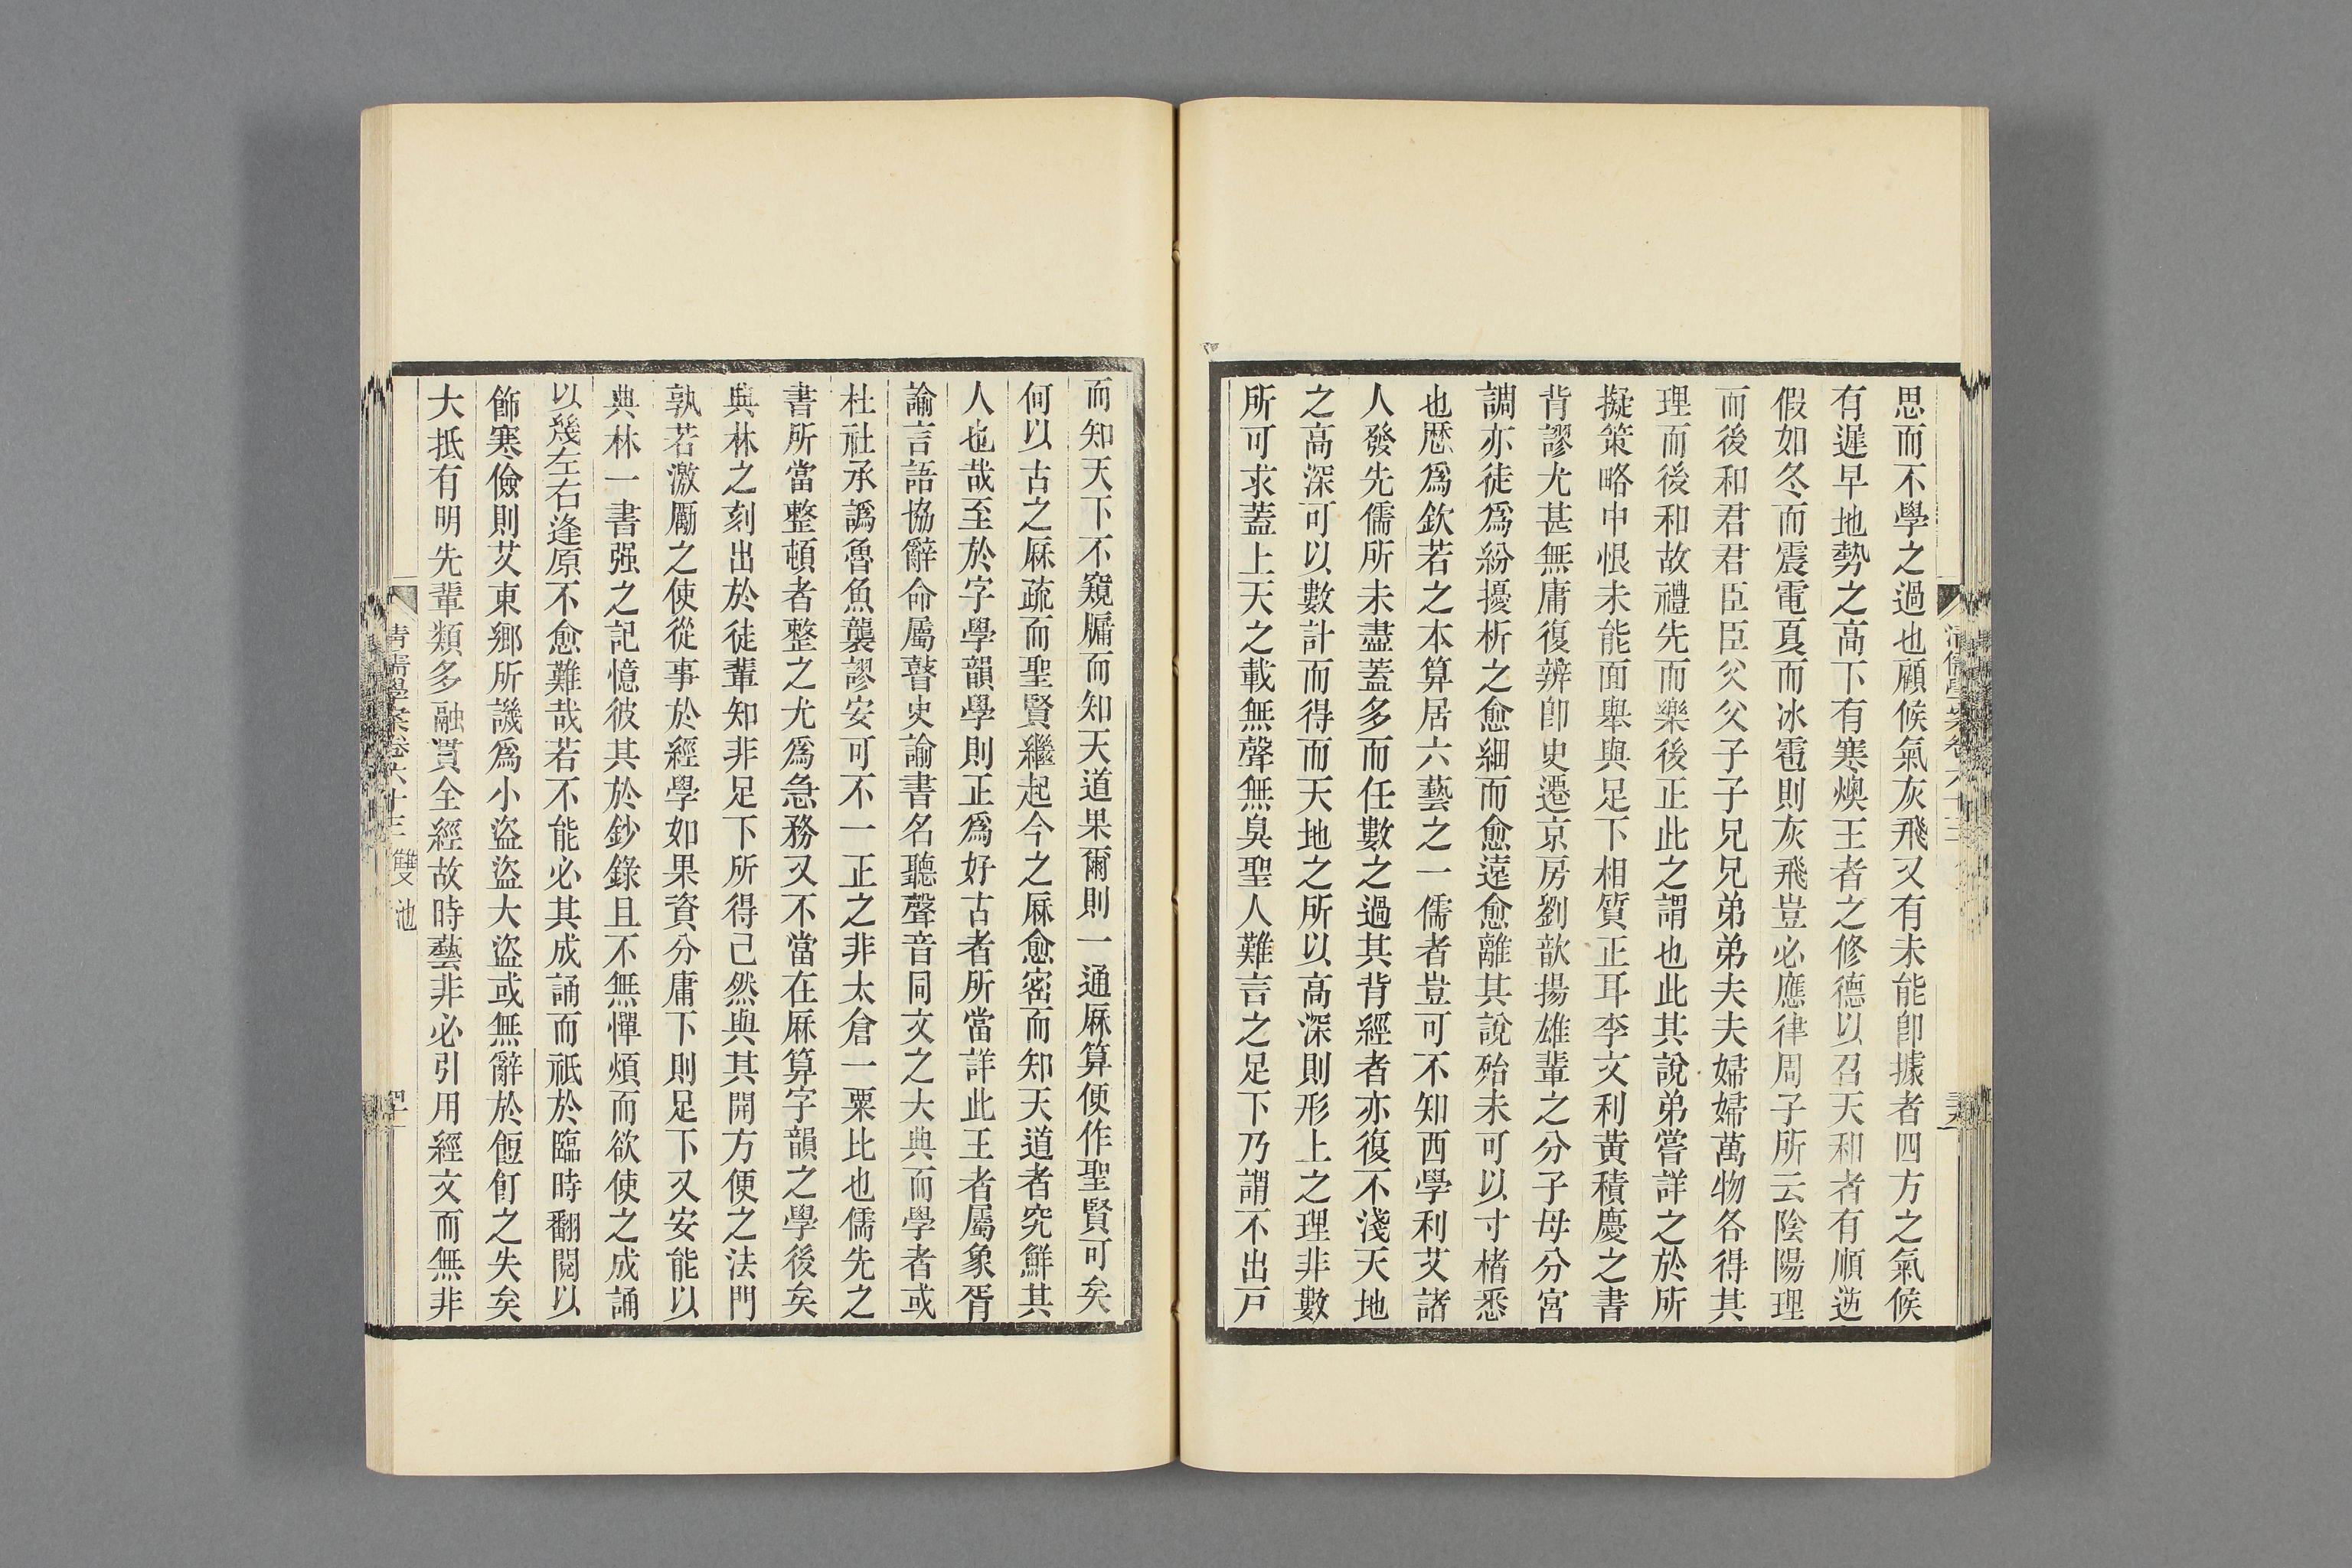 思而不學之過也顧候氣灰飛又有未能卽據者四方之氣候
有遲早地勢之高下有寒燠王者之修德以召天和者有順逆
假如冬而震電夏而冰雹則灰飛豈必應律周子所云陰陽理
而後和君君臣臣父父子子兄兄弟弟夫夫婦婦萬物各得其
理而後和故禮先而樂後正此之謂也此其說弟嘗詳之於所
擬策略中恨未能面舉與足下相質正耳李文利黃積慶之書
背謬尤甚無庸復辨卽史遷京房劉歆揚雄輩之分子母分宮
調亦徒爲紛擾析之愈細而愈遠愈離其說殆未可以寸楮悉
也厯爲欽若之本算居六藝之一儒者豈可不知西學利艾諸
人發先儒所未盡蓋多而任數之過其背經者亦復不淺天地
之高深可以數計而得而天地之所以高深則形上之理非數
所可求蓋上天之載無聲無臭聖人難言之足下乃謂不出戶
而知天下不窺牖而知天道果爾則一通厤算便作聖賢可矣
何以古之厤疏而聖賢繼起今之厤愈密而知天道者究鮮其
人也哉至於字學韻學則正爲好古者所當詳此王者屬象胥
諭言語協辭命屬瞽史諭書名聽聲音同文之大典而學者或
杜社承譌魯魚襲謬安可不一正之非太倉一粟比也儒先之
書所當整頓者整之尤爲急務又不當在厤算字韻之學後矣
與林之刻出於徒輩知非足下所得已然與其開方便之法門
孰若激厲之使從事於經學如果資分庸下則足下又安能以
典林一書强之記憶彼其於鈔錄且不無憚煩而欲使之成誦
以幾左右逢原不愈難哉若不能必其成誦而祇於臨時翻閱以
飾寒儉則艾東鄉所譏爲小盜盜大盜或無辭於餖飣之失矣
大抵有明先輩類多融貫全經故時藝非必引用經文而無非
清儒學案卷六十三 雙池